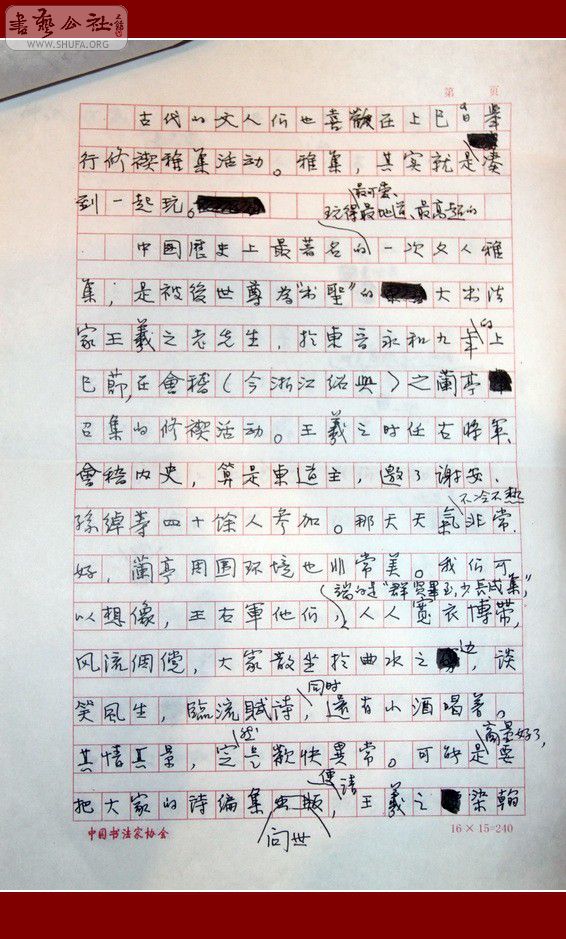 書藝公社
WWW.SHUFA.ORG
第 页
古代的文人们也喜歡在上巳日舉
行修禊雅集活动。雅集，其实就是凑
到一起玩。
最可愛、
玩得最地道、最高超的
中國歷史上最著名的一次文人雅
集，是被後世尊為"书聖"的大书法
家王羲之老先生，於東晉永和九年的上
巳節，在會稽（今浙江绍興）之蘭亭
召集的修禊活动。王羲之时任右將軍、
會稽内史，算是東道主，邀了謝安、
孫綽等四十餘人参加。那天天氣非常
不冷不热
好，蘭亭周围环境也非常美。我们可
端的是"群賢畢至，少長咸集"，
以想像，王右軍他们，人人寬衣博带，
风流倜儻，大家散坐於曲水之边，谈
笑風生，臨流賦詩，還有小酒喝着。
同时
其情其景，定是歡快異常。可能是要
然
商量好了，
把大家的诗编集出版，王羲之染翰
便请
问世
中国书法家协会
16×15=240